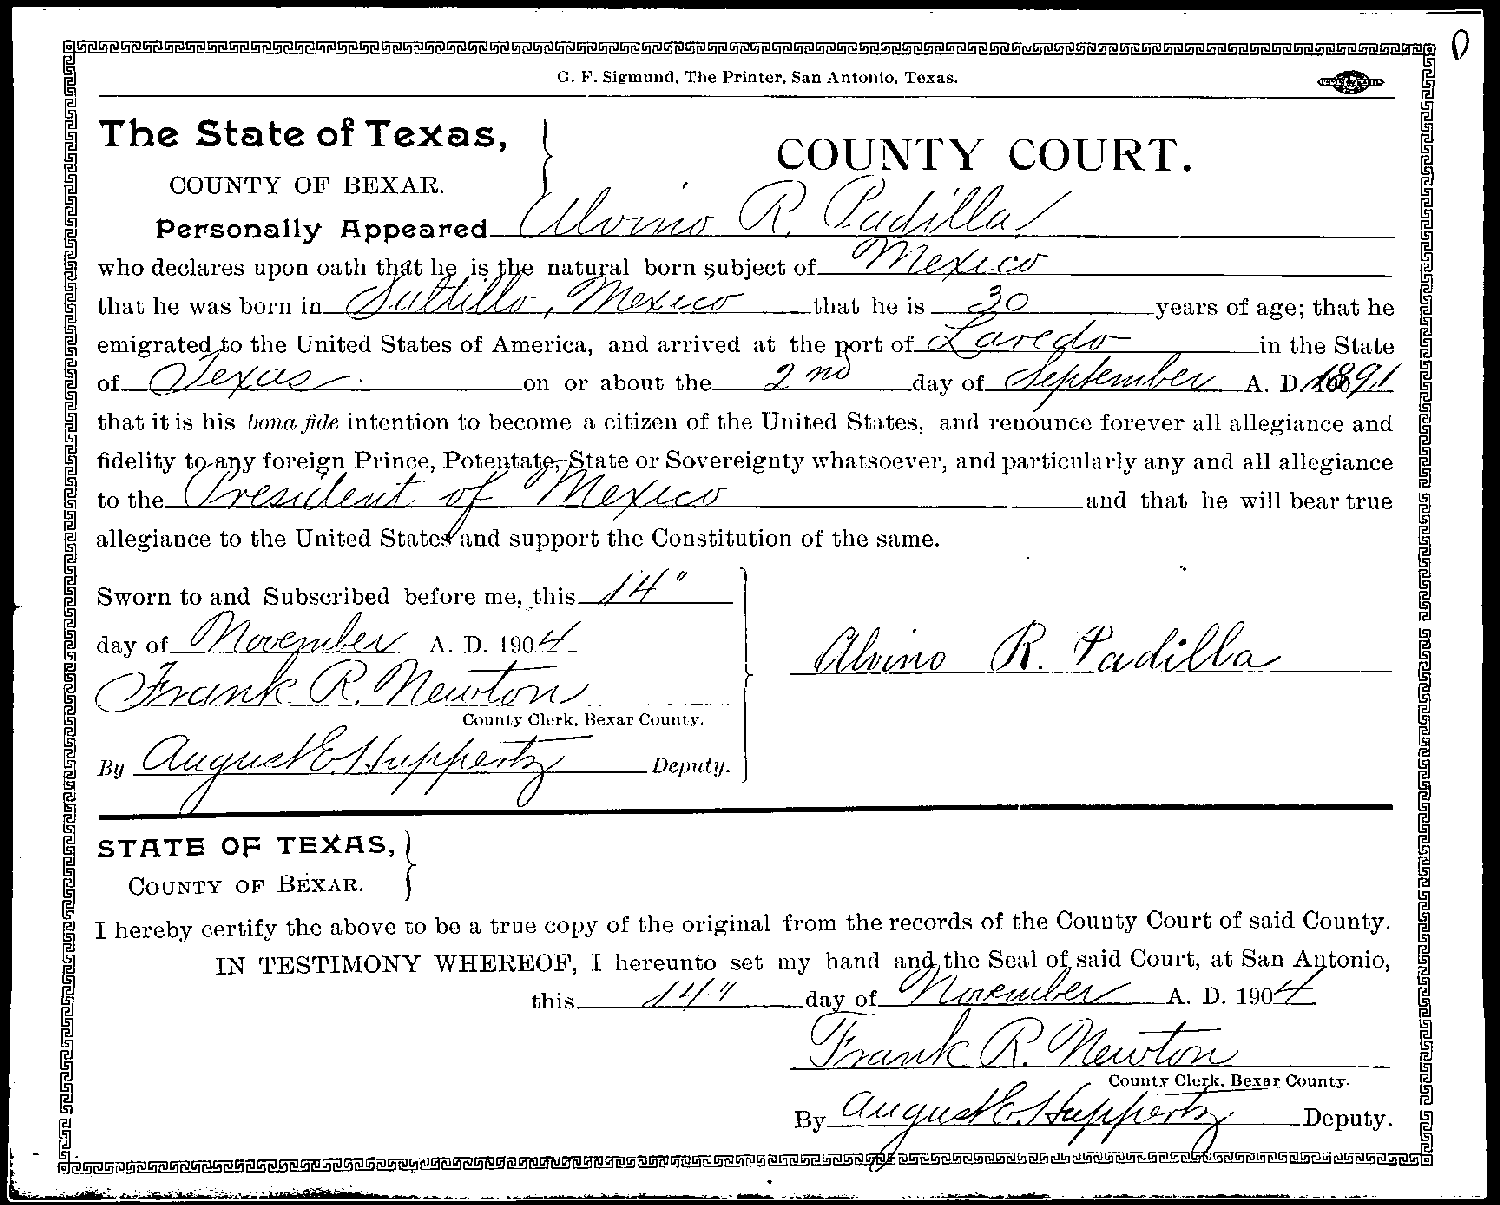 G. F. Sigmund, The Printer, San Antonio, Texas.
The State of Texas,
COUNTY OF BEXAR.
COUNTY COURT.
Personally Appeared Alvino R. Padilla
who declares upon oath that he is the natural born subject of Mexico
that he was born in Sultillo, Mexico that he is 30 years of age; that he
emigrated to the United States of America, and arrived at the port of Laredo in the State
of Texas on or about the 2nd day of September A. D. 1891
that it is his bona fide intention to become a citizen of the United States, and renounce forever all allegiance and
fidelity to any foreign Prince, Potentate, State or Sovereignty whatsoever, and particularly any and all allegiance
to the President of Mexico and that he will bear true
allegiance to the United States and support the Constitution of the same.
Sworn to and Subscribed before me, this 14"
day of November A. D. 1904
Alvino R. Padilla
Frank R. Newton
County Clerk, Bexar County.
By August E. Huppertz Deputy.
STATE OF TEXAS,
COUNTY OF BEXAR.
I hereby certify the above to be a true copy of the original from the records of the County Court of said County.
IN TESTIMONY WHEREOF, I hereunto set my hand and the Seal of said Court, at San Antonio,
this 14" day of November A. D. 1904
Frank R. Newton
County Clerk, Bexar County.
By August E. Huppertz Deputy.